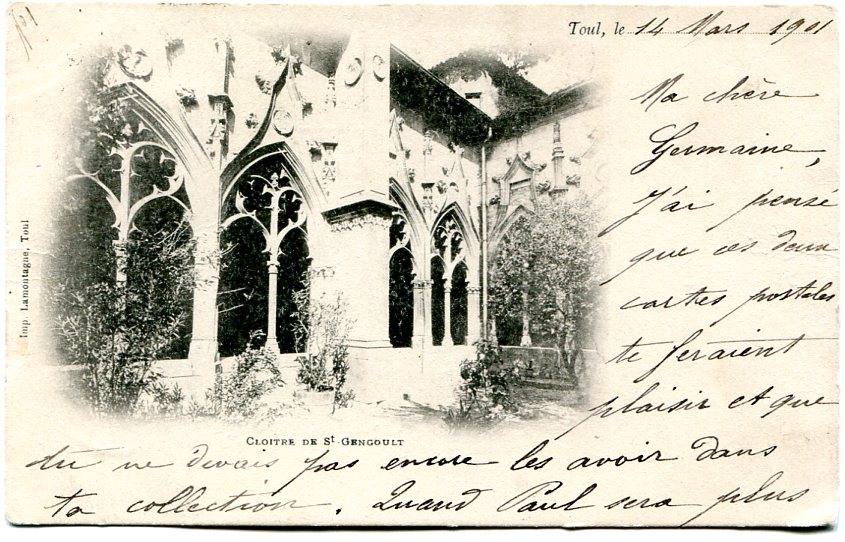 Toul, le 14 Mars 1901
Ma chère
Germaine,
J'ai pensé
que ces deux
cartes postales
te feraient
plaisir et que
tu ne devais pas encore les avoir dans
ta collection. Quand Paul sera plus
CLOITRE DE St GENGOULT
Imp. Lamontagne, Toul